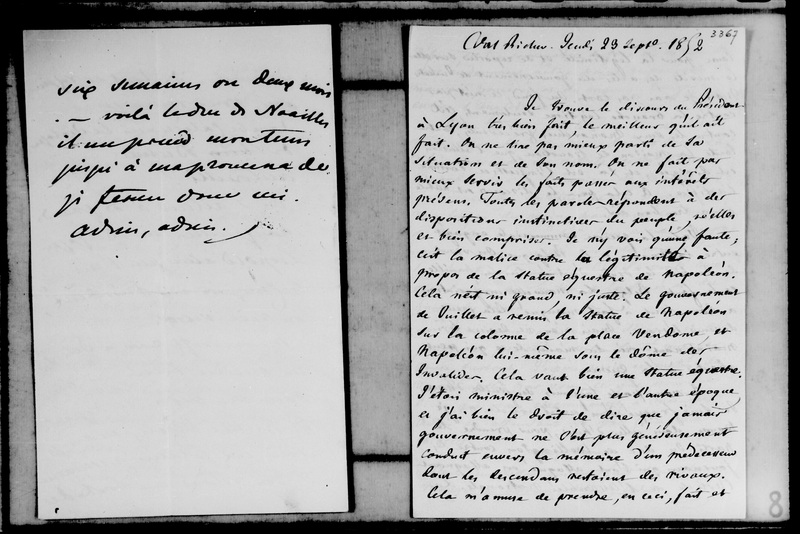 six semaines ou deux mois
. — voilà le duc de Noailles
il me prend mon tems
jusqu'à ma promenade.
je ferme donc ici.
adieu, adieu.
3367
Val Richer. Jeudi 23 Septe. 1852
Je trouve le discours du Président
à Lyon très bien fait, le meilleur qu'il ait
fait. On ne tire pas mieux parti de sa
situation et de son nom. On ne fait pas
mieux servir les faits passés aux intérêts
présens. Toutes les paroles répondent à des
dispositions instinctives du peuple, réelles
et bien comprises. Je n'y vois qu'une faute;
c'est la malice contre la légitimité à
propos de la statue équestre de Napoléon.
Cela n'est ni grand, ni juste. Le gouvernement
de Juillet a remis la statue de Napoléon
sur la colonne de la place Vendome, et
Napoléon lui-même sous le dôme des
Invalides. Cela vaut bien une statue équestre.
J'étais ministre à l'une et l'autre époque,
et j'ai bien le droit de dire que jamais
gouvernement ne s'est plus généreusement
conduit envers la mémoire d'un prédécesseur
dont les descendans restaient des rivaux.
Cela m'amuse de prendre, en ceci, fait et
8